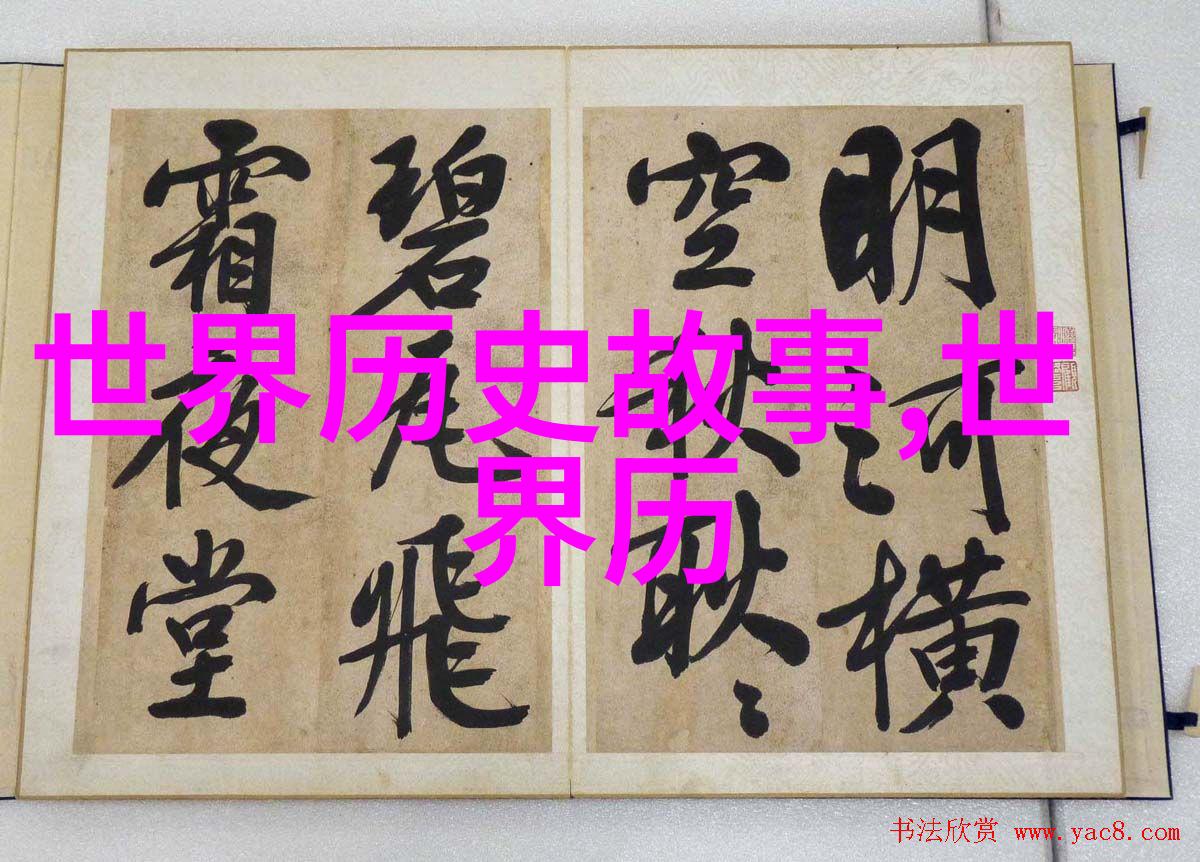 明河横
空秋耿〻
碧瓦飛
霜夜堂
世界历史故事,世
界历
书法欣赏 www.yac8.com